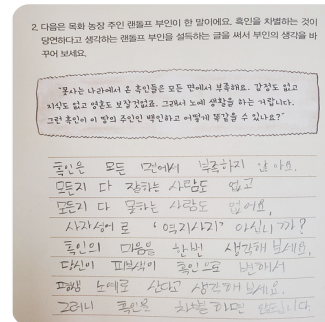 2. 다음은 목화 농장 주인 랜돌프 부인이 한 말이에요. 흑인을 차별하는 것이
당연하다고 생각하는 랜돌프 부인을 설득하는 글을 써서 부인의 생각을 바
꾸어 보세요.
"못사는 나라에서 온 흑인들은 모든 면에서 부족해요. 감정도 없고
지식도 없고 영혼도 보잘것없죠. 그래서 노예 생활을 하는 거랍니다.
그런 흑인이 이 땅의 주인인 백인하고 어떻게 똑같을 수 있나요?"
흑인은 모든 면에서 부족하지 않아요.
모든지 다 잘하는 사람도 없고
모든지 다 못하는 사람도 없어요.
사자성어로 '역지사지' 아십니까?
흑인의 마음을 한번 생각해보세요.
당신이 피부색이 흑인으로 변해서
평생 노예로 산다고 생각해보세요.
그러니 흑인을 차별하면 안됩니다.